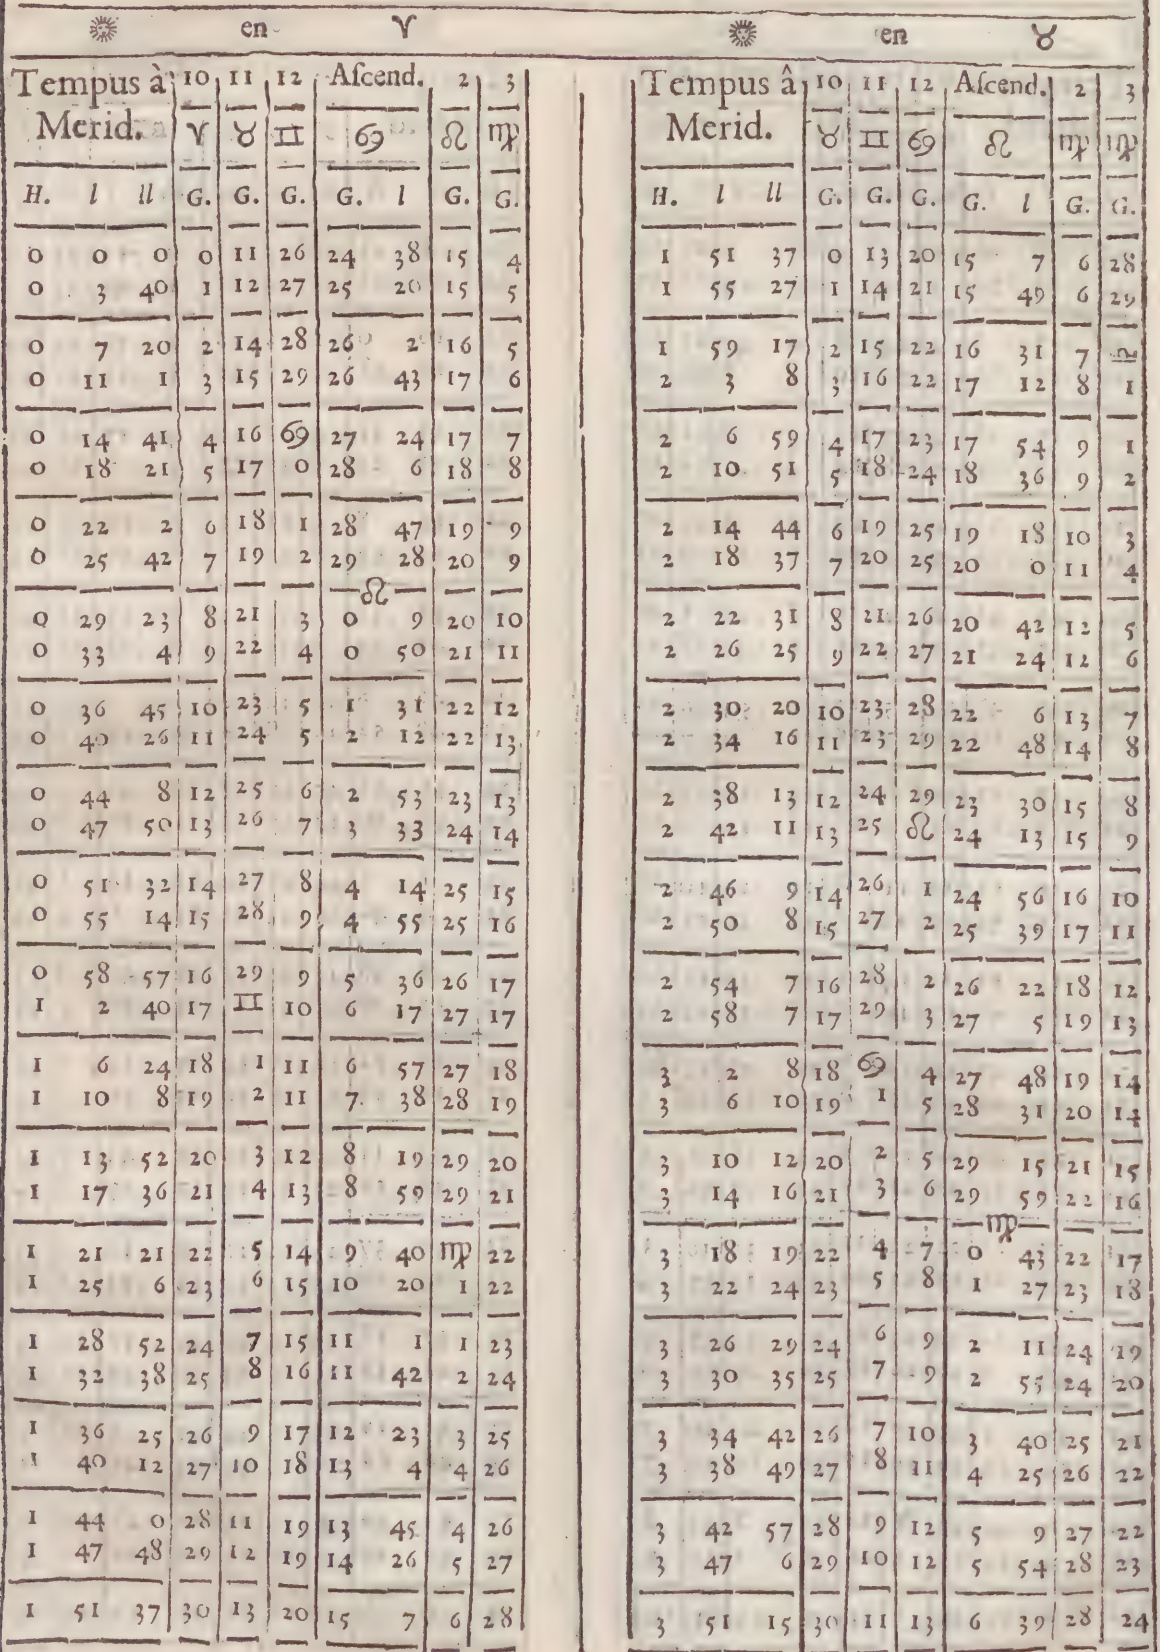 ☀ en ♈
Tempus à Merid. 10 11 12 Aſcend. 2 3
♈ ♉ ♊ ♋ ♌ ♍
H. l ll G. G. G. G. l G. G.
0 0 0 0 11 26 24 38 15 4
0 3 40 1 12 27 25 20 15 5
0 7 20 2 14 28 26 2 16 5
0 11 1 3 15 29 26 43 17 6
0 14 41 4 16 ♋ 27 24 17 7
0 18 21 5 17 0 28 6 18 8
0 22 2 6 18 1 28 47 19 9
0 25 42 7 19 2 29 28 20 9
♌
0 29 23 8 21 3 0 9 20 10
0 33 4 9 22 4 0 50 21 11
0 36 45 10 23 5 1 31 22 12
0 40 26 11 24 5 2 12 22 13
0 44 8 12 25 6 2 53 23 13
0 47 50 13 26 7 3 33 24 14
0 51 32 14 27 8 4 14 25 15
0 55 14 15 28 9 4 55 25 16
0 58 57 16 29 9 5 36 26 17
1 2 40 17 ♊ 10 6 17 27 17
1 6 24 18 1 11 6 57 27 18
1 10 8 19 2 11 7 38 28 19
1 13 52 20 3 12 8 19 29 20
1 17 36 21 4 13 8 59 29 21
1 21 21 22 5 14 9 40 ♍ 22
1 25 6 23 6 15 10 20 1 22
1 28 52 24 7 15 11 1 1 23
1 32 38 25 8 16 11 42 2 24
1 36 25 26 9 17 12 23 3 25
1 40 12 27 10 18 13 4 4 26
1 44 0 28 11 19 13 45 4 26
1 47 48 29 12 19 14 26 5 27
1 51 37 30 13 20 15 7 6 28
☀ en ♉
Tempus â Merid. 10 11 12 Aſcend. 2 3
♉ ♊ ♋ ♌ ♍ ♍
H. l ll G. G. G. G. l G. G.
1 51 37 0 13 20 15 7 6 28
1 55 27 1 14 21 15 49 6 29
1 59 17 2 15 22 16 31 7 ♎
2 3 8 3 16 22 17 12 8 1
2 6 59 4 17 23 17 54 9 1
2 10 51 5 18 24 18 36 9 2
2 14 44 6 19 25 19 18 10 3
2 18 37 7 20 25 20 0 11 4
2 22 31 8 21 26 20 42 12 5
2 26 25 9 22 27 21 24 12 6
2 30 20 10 23 28 22 6 13 7
2 34 16 11 23 29 22 48 14 8
2 38 13 12 24 29 23 30 15 8
2 42 11 13 25 ♌ 24 13 15 9
2 46 9 14 26 1 24 56 16 10
2 50 8 15 27 2 25 39 17 11
2 54 7 16 28 2 26 22 18 12
2 58 7 17 29 3 27 5 19 13
3 2 8 18 ♋ 4 27 48 19 14
3 6 10 19 1 5 28 31 20 14
3 10 12 20 2 5 29 15 21 15
3 14 16 21 3 6 29 59 22 16
♍
3 18 19 22 4 7 0 43 22 17
3 22 24 23 5 8 1 27 23 18
3 26 29 24 6 9 2 11 24 19
3 30 35 25 7 9 2 55 24 20
3 34 42 26 7 10 3 40 25 21
3 38 49 27 8 11 4 25 26 22
3 42 57 28 9 12 5 9 27 22
3 47 6 29 10 12 5 54 28 23
3 51 15 30 11 13 6 39 28 24